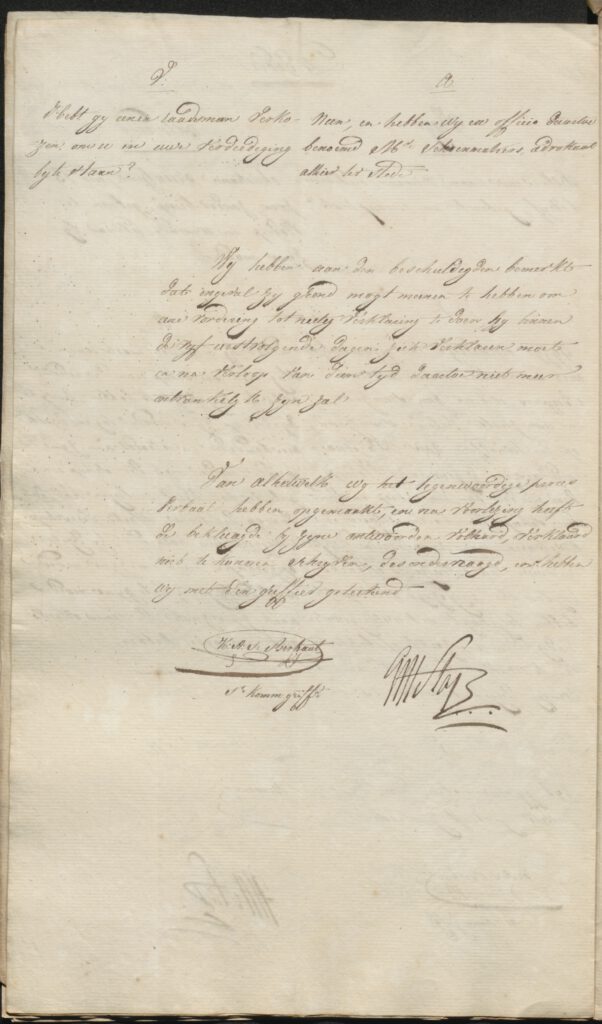 V. A.
Hebt gy eenen raadsman Verko-
zen, om u in uwe Verdediging
by te staan?
Neen, en hebben wy ex officio daartoe
benoemd Mr. advokaat
alhier ter stede
Wy hebben aan den beschuldigden bemerkt
dat ingeval hy grond mogt meenen te hebben om
eene Vordering tot nietig Verklaring te doen hy binnen
de vyf eerstvolgende dagen zich Verklaren moet
en na Verloop van dien tyd daartoe niet meer
ontvankelyk zyn zal
Van al hetwelk wy het tegenwoordige proces
Verbaal hebben opgemaakt, en na Voorlezing heeft
de beklaagde by zyne antwoorden Volhard, Verklaard
niet te kunnen schryven, des ondervraagd, en hebben
wy met den griffier geteekend
Komm griffr